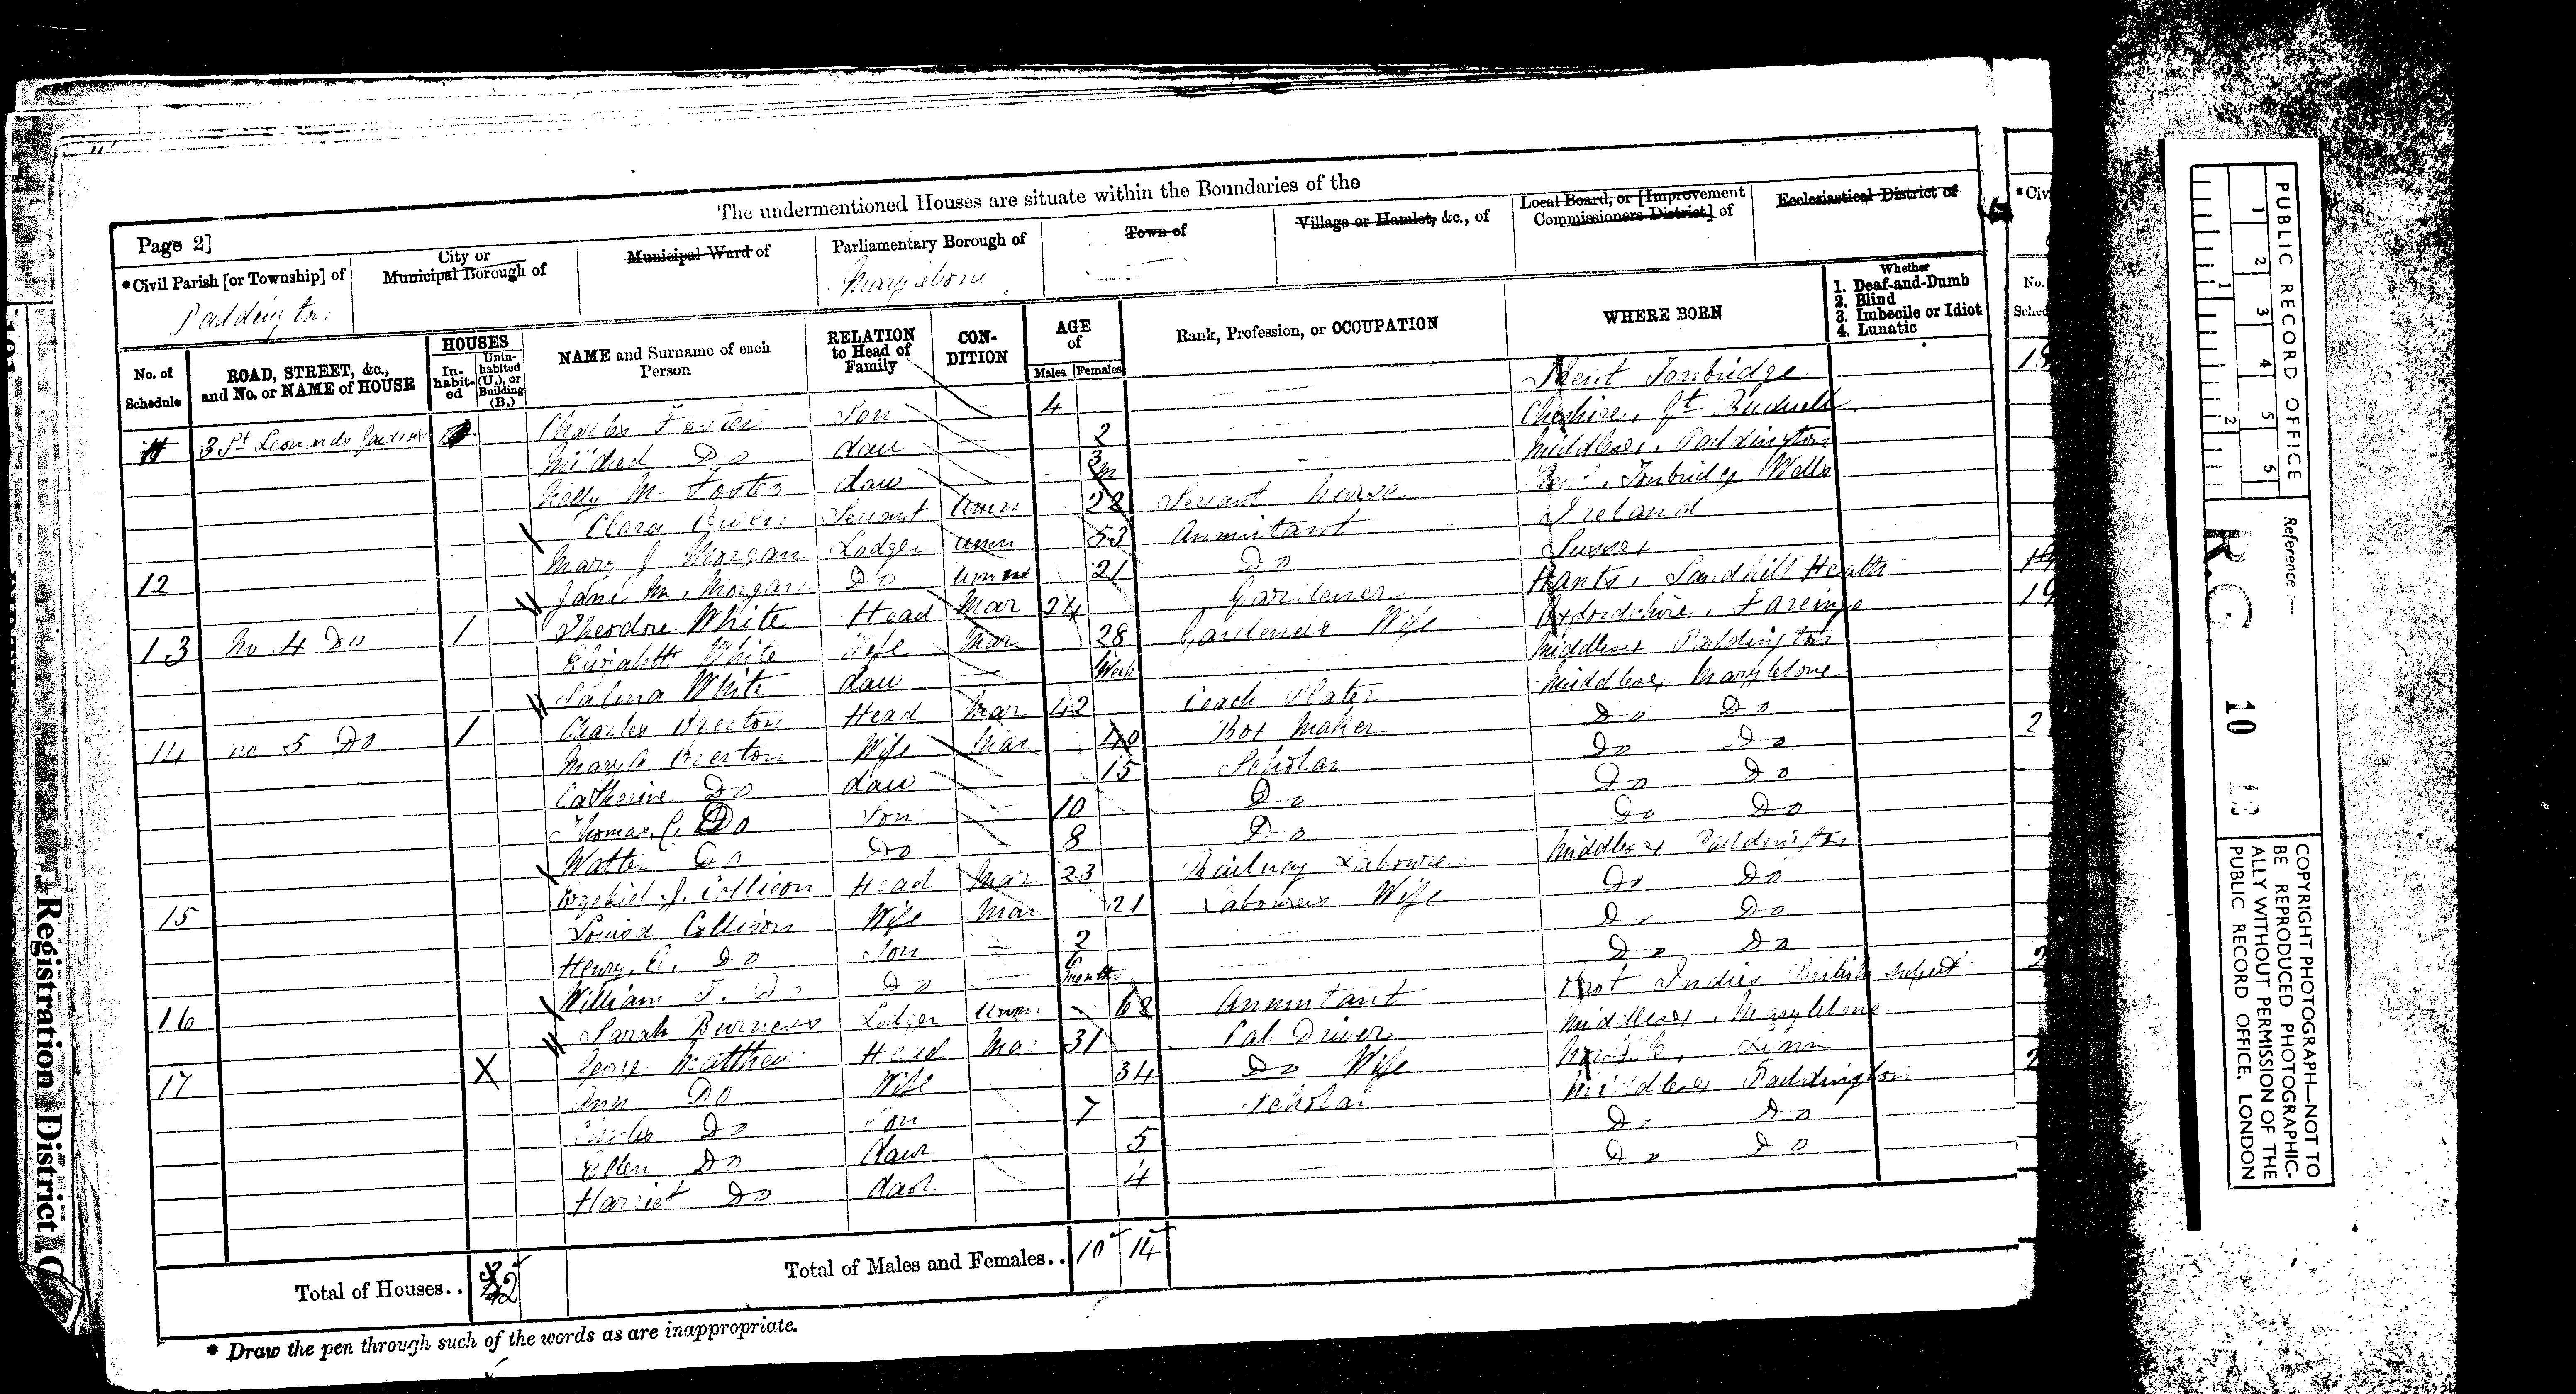 The undermentioned Houses are situate within the Boundaries of the
Page 2]
*Civil Parish [or Township] of
Paddington
City or
Municipal Borough of
Municipal Ward of
Parliamentary Borough of
Marylebone
Town of
Village or Hamlet, &c., of
Local Board, or [Improvement
Commissioners District] of
Ecclesiastical District of
No. of
Schedule
ROAD, STREET, &c.,
and No. or NAME of HOUSE
HOUSES
In-
habit-
ed
Unin-
habited
(U.), or
Building
(B.)
NAME and Surname of each
Person
RELATION
to Head of
Family
CON-
DITION
AGE
of
Males Females
Rank, Profession, or OCCUPATION
WHERE BORN
Whether
1. Deaf-and-Dumb
2. Blind
3. Imbecile or Idiot
4. Lunatic
11 3 St Leonards Gardens Charles Foster Son 4 Kent Tonbridge
Mildred Do dau 2 Cheshire, Gt
Nelly M. Foster dau 3 m Middlesex, Paddington
Clara Servant Unm 22 Servant Nurse Tonbridge Wells
12 Mary J Morgan Lodger Unm 53 Annuitant Ireland
Jane M. Morgan Do Unm 21 Do Sussex
13 No 4 Do 1 Theodore White Head Mar 24 Gardener Hants, Heath
Elizabeth White Wife Mar 28 Gardeners Wife Oxfordshire,
Salina White dau Week Middlesex Paddington
14 No 5 Do 1 Charles Head Mar 42 Coach Plater Middlesex Marylebone
Mary A Wife Mar 40 Box Maker Do Do
Catherine Do dau 15 Scholar Do Do
Thomas C. Do Son 10 Do Do Do
Walter Do Do 8 Do Do Do
15 Ezekiel J. Collison Head Mar 23 Railway Labourer Middlesex Paddington
Louisa Collison Wife Mar 21 Labourers Wife Do Do
Henry, E. Do Son 2 Do Do
William J. Do Do months Do Do
16 Sarah Burness Lodger Unm 68 Annuitant Indies British Subject
17 X George Matthew Head Mar 31 Cab Driver Middlesex, Marylebone
Ann Do Wife 34 Do Wife Norfolk,
Do Son 7 Scholar Middlesex Paddington
Ellen Do daur 5 Do Do
Harriet Do daur 4 Do Do
Total of Houses.. 2
Total of Males and Females.. 10 14
* Draw the pen through such of the words as are inappropriate.
Registration District
*Civ
No.
Sched
PUBLIC RECORD OFFICE
1 2 3 4 5 6
1 2
Reference:—
R.G. 10
COPYRIGHT PHOTOGRAPH—NOT TO
BE REPRODUCED PHOTOGRAPHIC-
ALLY WITHOUT PERMISSION OF THE
PUBLIC RECORD OFFICE, LONDON